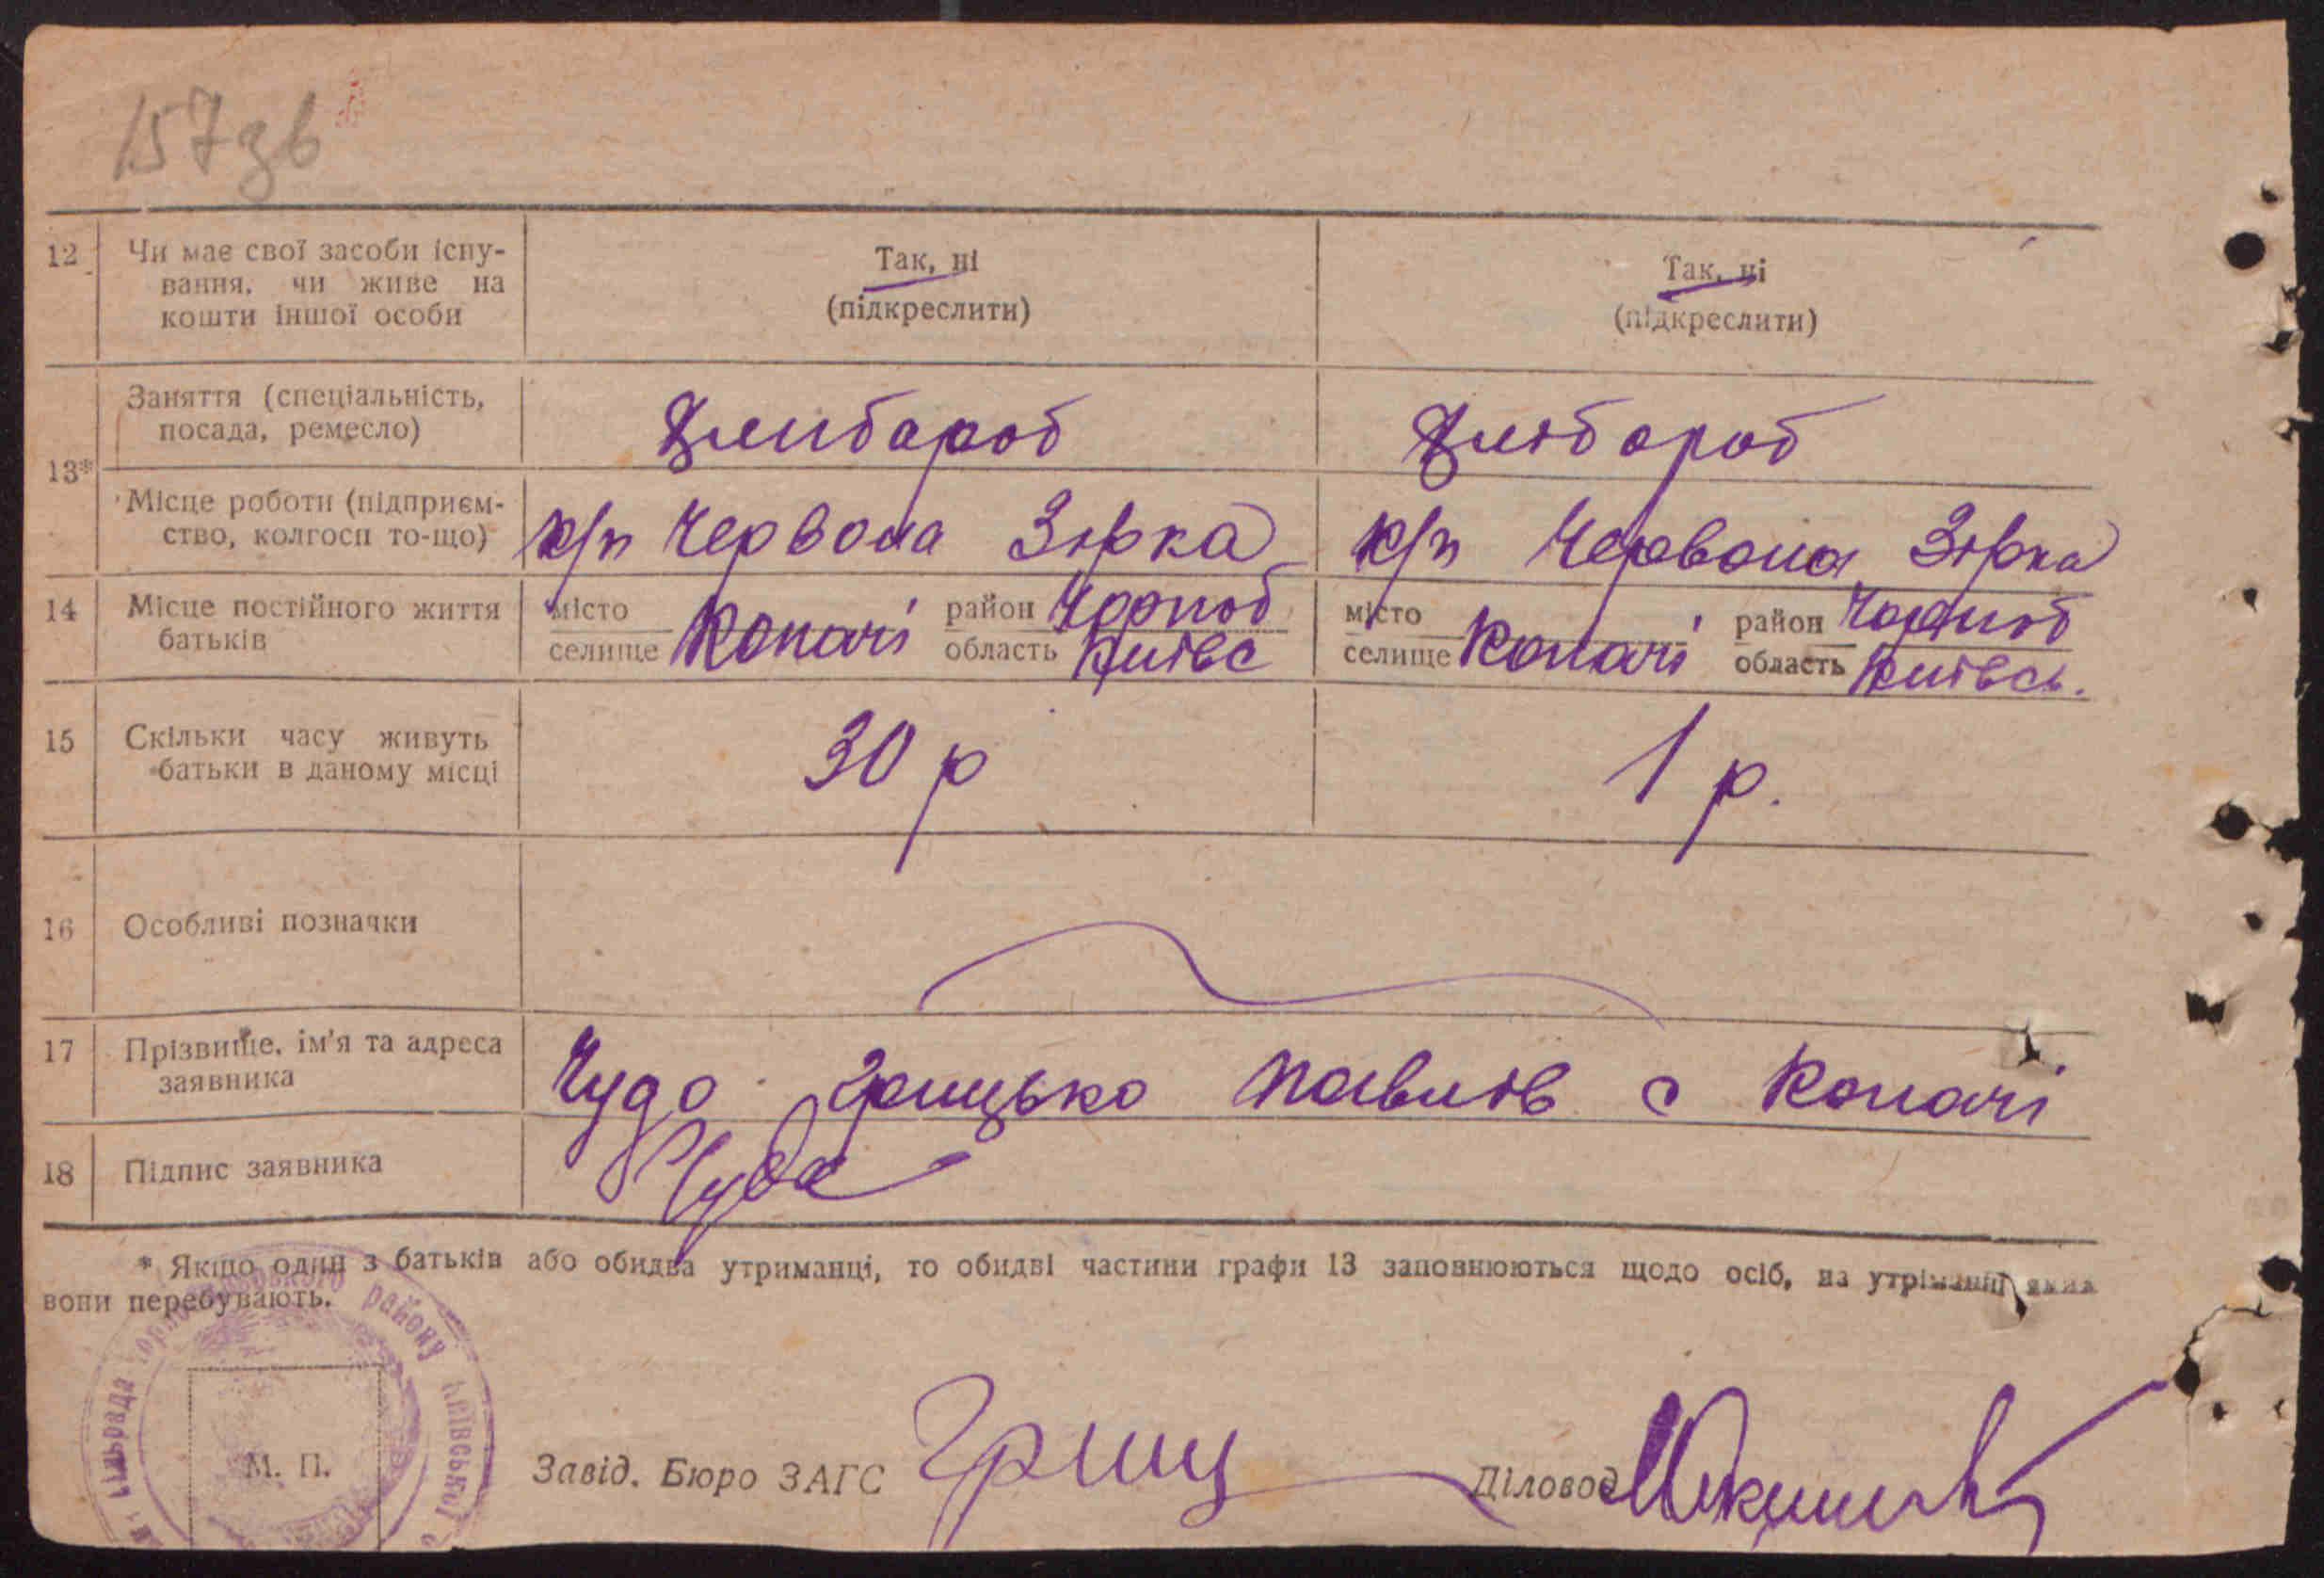 157зв
12 Чи має свої засоби існу- Так, ні Так, ні
вання, чи живе на (підкреслити) (підкреслити)
кошти іншої особи
13* Заняття (спеціальність, Хлибороб Хлібороб
посада, ремесло)
Місце роботи (підприєм- к/п Червона Зірка к/п Червона Зірка
ство, колгосп то-що)
14 Місце постійного життя місто район Чорноб місто район Чорноб
батьків селище Копачі область Київс селище Копачі область Київсь.
15 Скільки часу живуть 30 р 1 р.
батьки в даному місці
16 Особливі позначки
17 Прізвище, ім'я та адреса Чудо Грицько Павлів с Копачі
заявника
18 Підпис заявника Чудо
* Якщо один з батьків або обидва утриманці, то обидві частини графи 13 заповнюються щодо осіб, на утриманні яких
вони перебувають.
району Київської
М. П.
Завід. Бюро ЗАГС Гриц Діловод